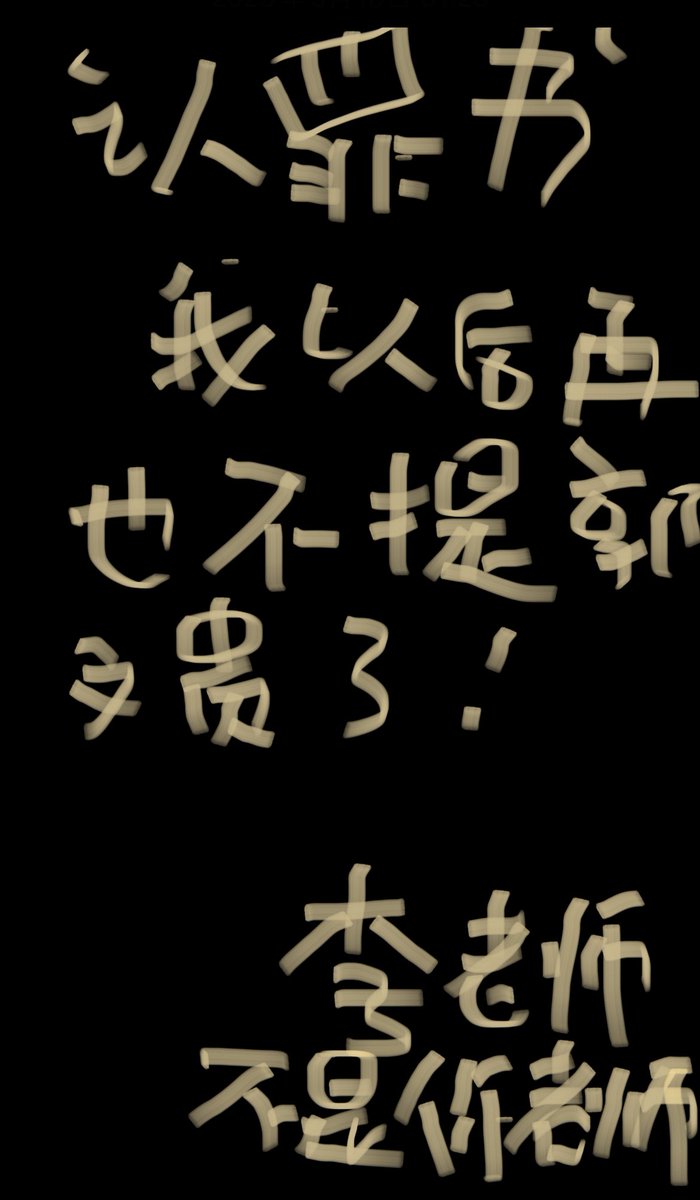 认罪书
我以后再
也不提郭
文贵了！
李老师
不是你老师